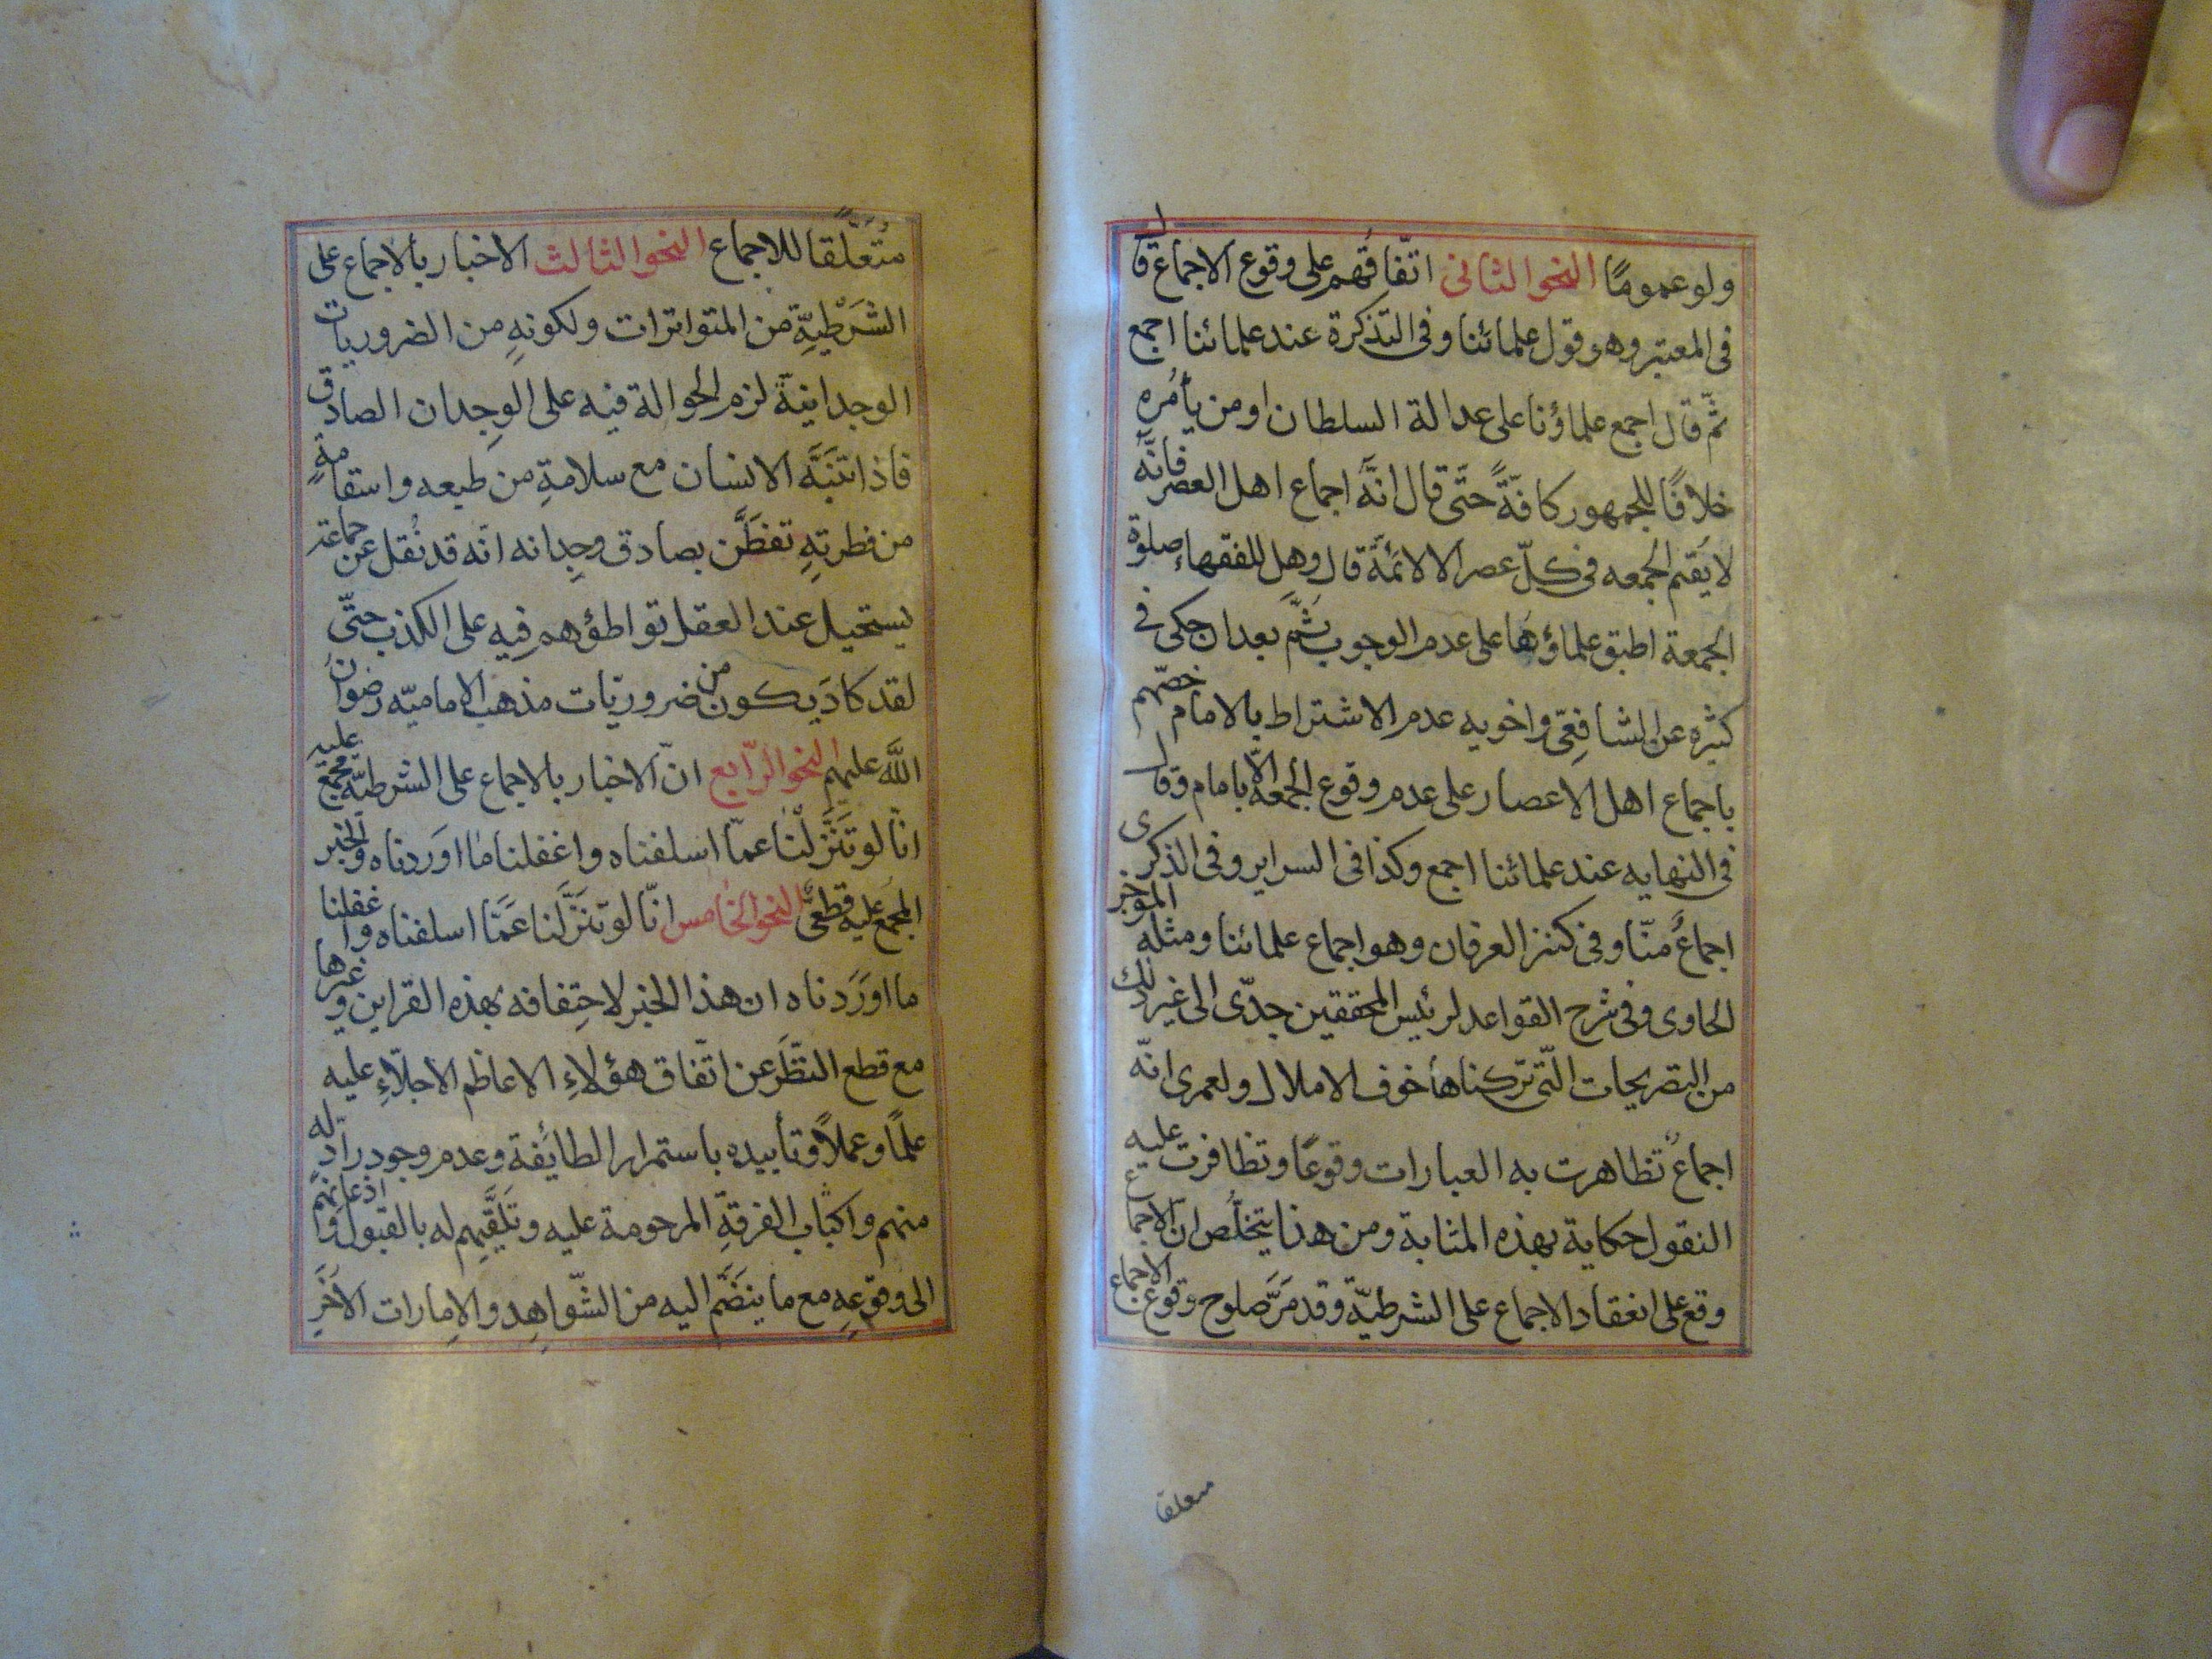 ولو عمومًا النحو الثانی اتّفاقهم علی وقوع الاجماع قال
فی المعتبر وهو قول علمائنا وفی التذکرة عند علمائنا اجمع
ثمّ قال اجمع علماؤنا علی عدالة السلطان او من یأمره
خلافًا للجمهور کافّةً حتّی قال انّه اجماع اهل العصر فانّه
لا یقم الجمعه فی کلّ عصر الا الائمّة قال وهل للفقهاء صلوة
الجمعة اطبق علماؤها علی عدم الوجوب ثمّ بعد ان حکی فی
کثیره عن الشافعیّ واخویه عدم الاشتراط بالامام خصّهم
باجماع اهل الاعصار علی عدم وقوع الجمعة الّا بامام وقال
فی النهایه عند علمائنا اجمع وکذا فی السرایر وفی الذکری
اجماعٌ منّا وفی کنز العرفان وهو اجماع علمائنا ومثله الموجز
الحاوی وفی شرح القواعد لرئیس المحققین جدّی الی غیر ذلک
من التصریحات الّتی ترکناها خوف الاملال ولعمری انّه
اجماعٌ تظاهرت به العبارات وقوعًا وتظافرت علیه
النقول حکایة بهذه المثابة ومن هذا یتخلّص انّ الاجماع
وقع علی انعقاد الاجماع علی الشرطیّة وقد مرّ صلوح وقوع الاجماع
متعلقا
متعلّقًا للاجماع النحو الثالث الاخبار بالاجماع علی
الشرطیّةِ من المتواترات ولکونهِ من الضروریات
الوجدانیّة لزم الحوالة فیه علی الوِجدان الصادق
فاذا تنبّه الانسان مع سلامةِ من طبعه واستقامةٍ
من فطرتهِ تفطّن بصادق وِجدانه انّه قد نُقل عن جماعة
یستحیل عند العقل تواطؤهم فیه علی الکذب حتّی
لقد کادَ یکون من ضروریّات مذهب الامامیّه رضوان
اللّه علیهم النحو الرّابع انّ الاخبار بالاجماع علی الشرطیّه مجمع علیه
انّا لو تنزّلنا عمّا اسلفناه واغفلنا ما اوردناه والخبر
المجمع علیه قطعیٌّ النحو الخامس انّا لو تنزّلنا عمّا اسلفناه واغفلنا
ما اوردناه ان هذا الخبر لاحتِفافه بهذه القراین وغیرها
مع قطع النّظر عن اتّفاق هؤلاءِ الاعاظم الاجلّاءِ علیه
علمًا وعملاً وتأییده باستمرار الطائفة وعدم وجود رادّ له
منهم واکباب الفرقةِ المرحومة علیه وتلقّیهم له بالقبول واذعانهم
الی وقوعِهِ مع ما ینضمّ الیه من الشّواهِد والامارات الاخَرِ